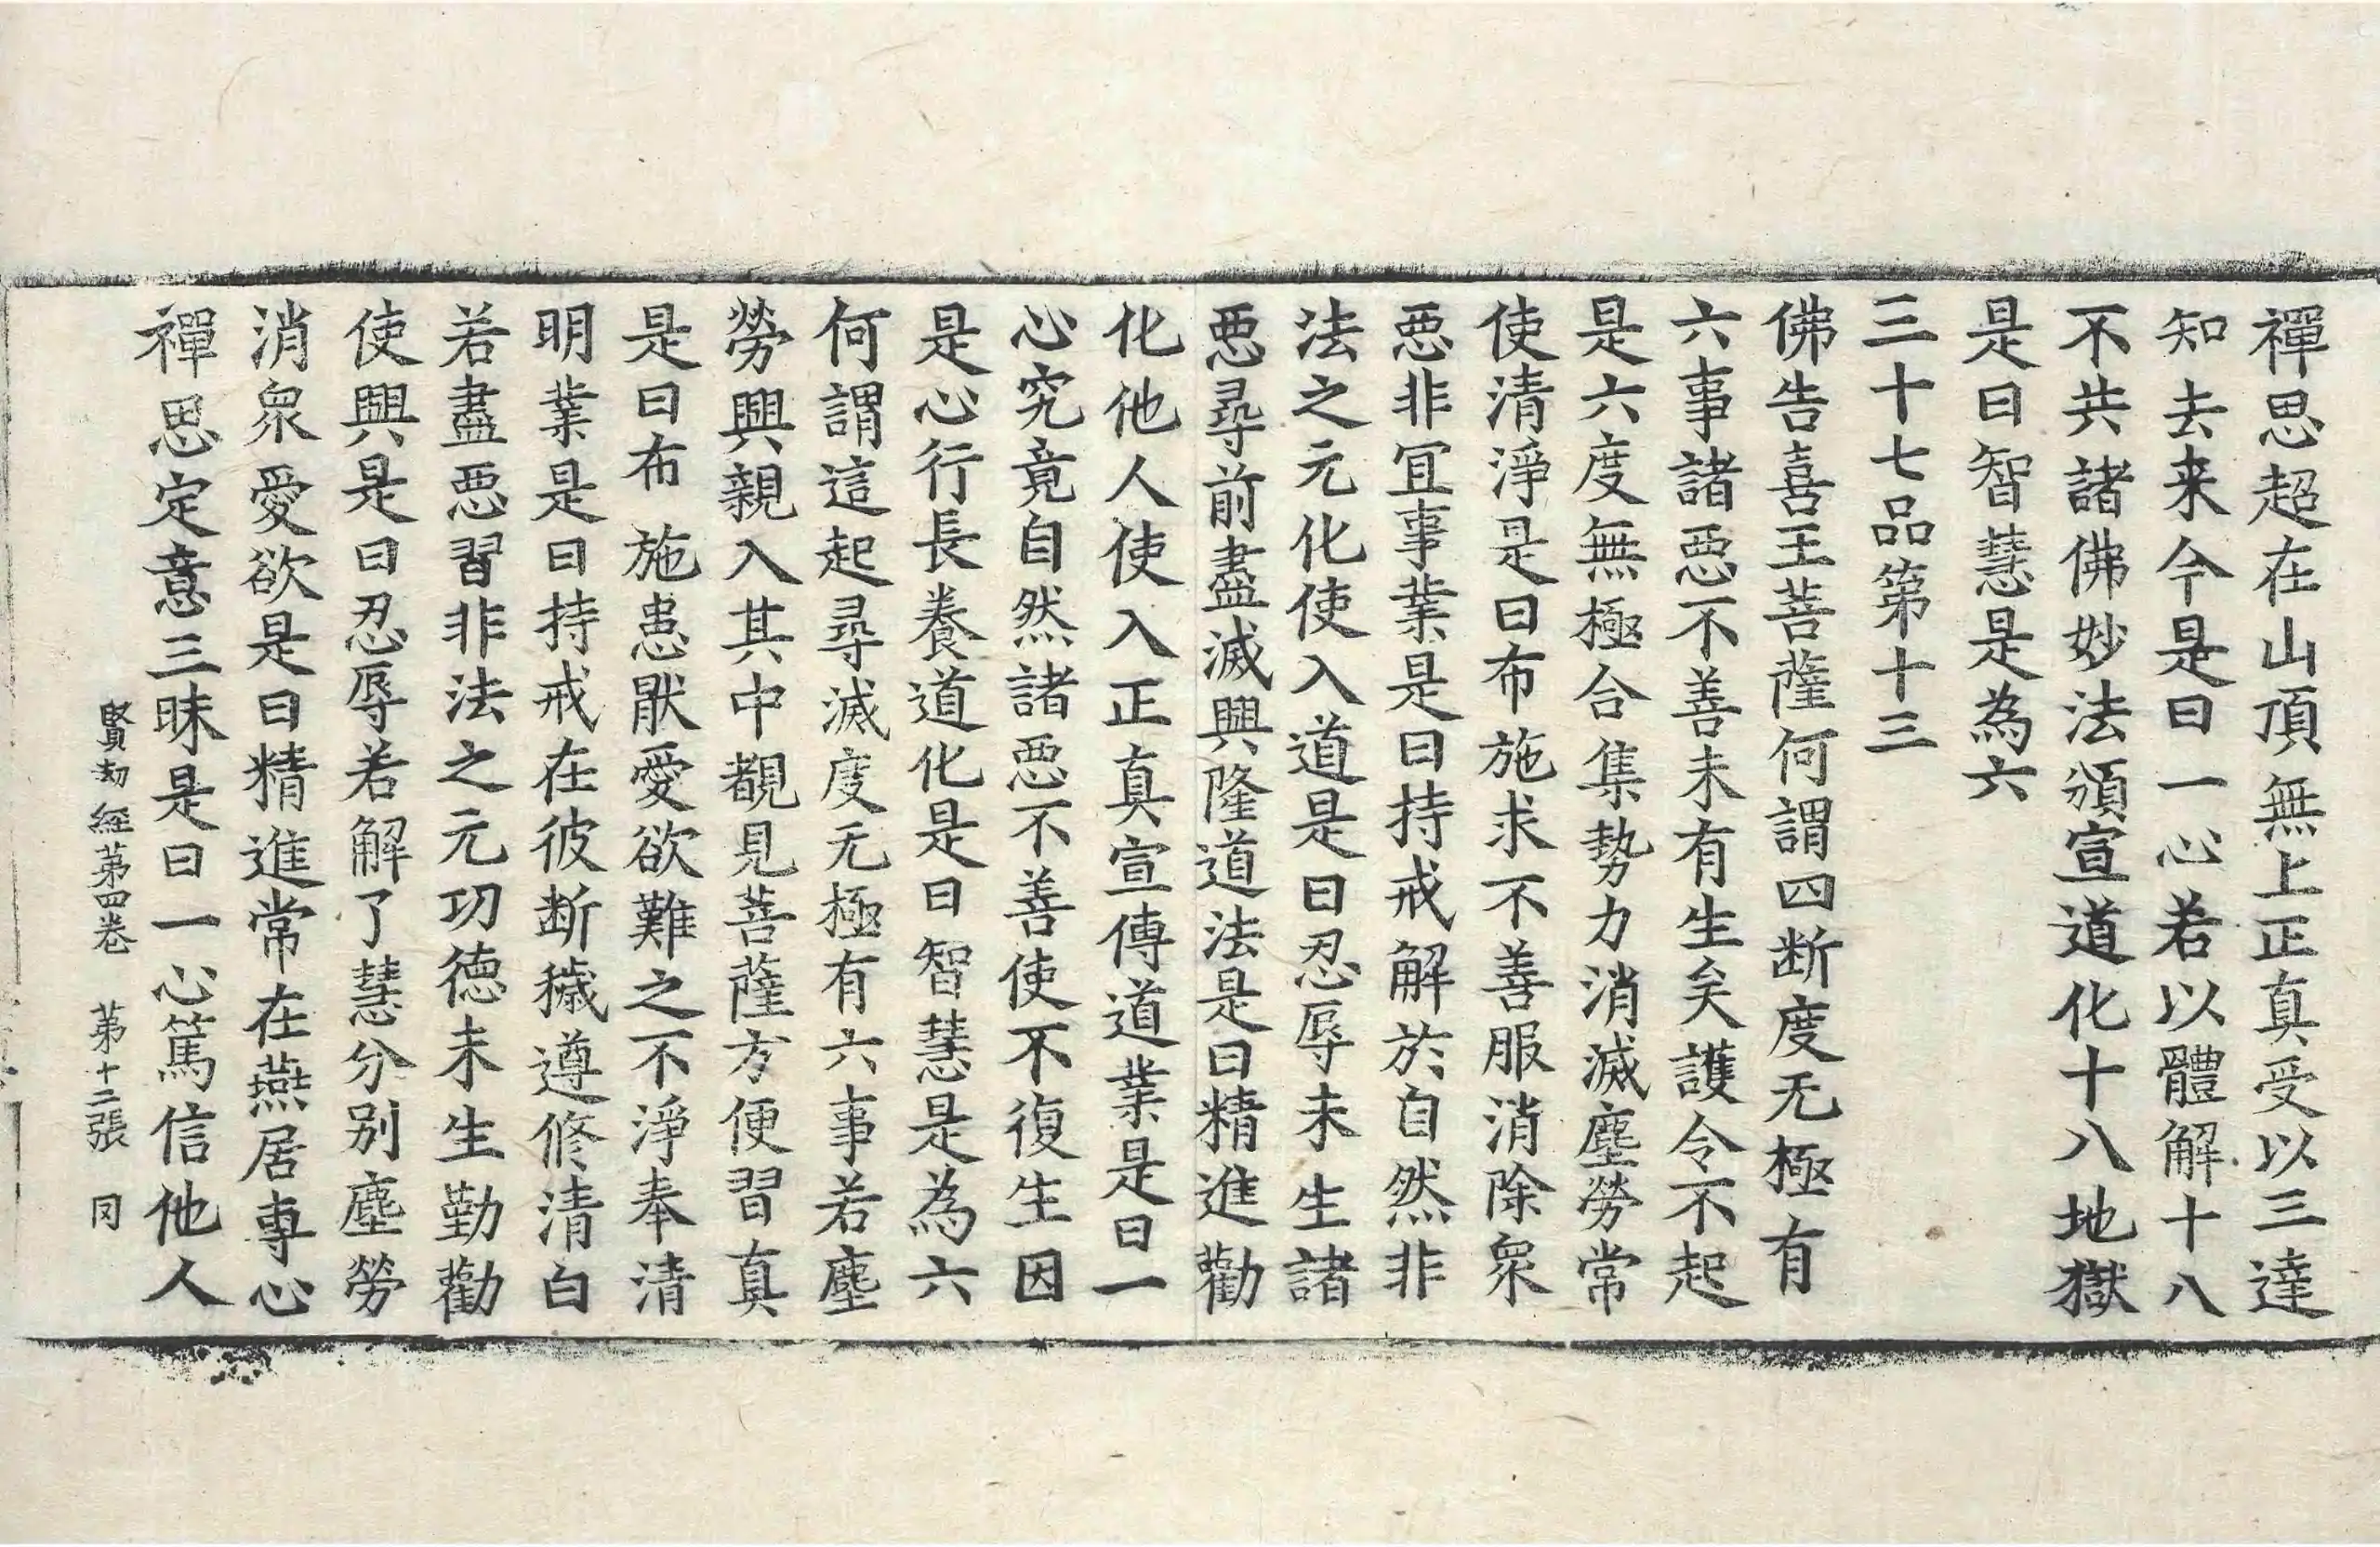 禪思超在山頂無上正真受以三達
知去来今是曰一心若以體解十八
不共諸佛妙法頒宣道化十八地獄
是曰智慧是為六
三十七品第十三
佛告喜王菩薩何謂四断度无極有
六事諸惡不善未有生矣護令不起
是六度無極合集勢力消滅塵勞常
使清淨是曰布施求不善服消除衆
惡非冝事業是曰持戒解於自然非
法之元化使入道是曰忍辱未生諸
惡尋前盡滅興隆道法是曰精進勸
化他人使入正真宣傳道業是曰一
心究竟自然諸惡不善使不復生因
是心行長養道化是曰智慧是為六
何謂這起尋滅度无極有六事若塵
勞興親入其中覩見菩薩方便習真
是曰布施患猒愛欲難之不淨奉清
明業是曰持戒在彼断穢遵修清白
若盡惡習非法之元功德未生勤勸
使興是曰忍辱若解了慧分别塵勞
消衆愛欲是曰精進常在燕居專心
禪思定意三昧是曰一心篤信他人
賢劫經第四卷　第十二張　同